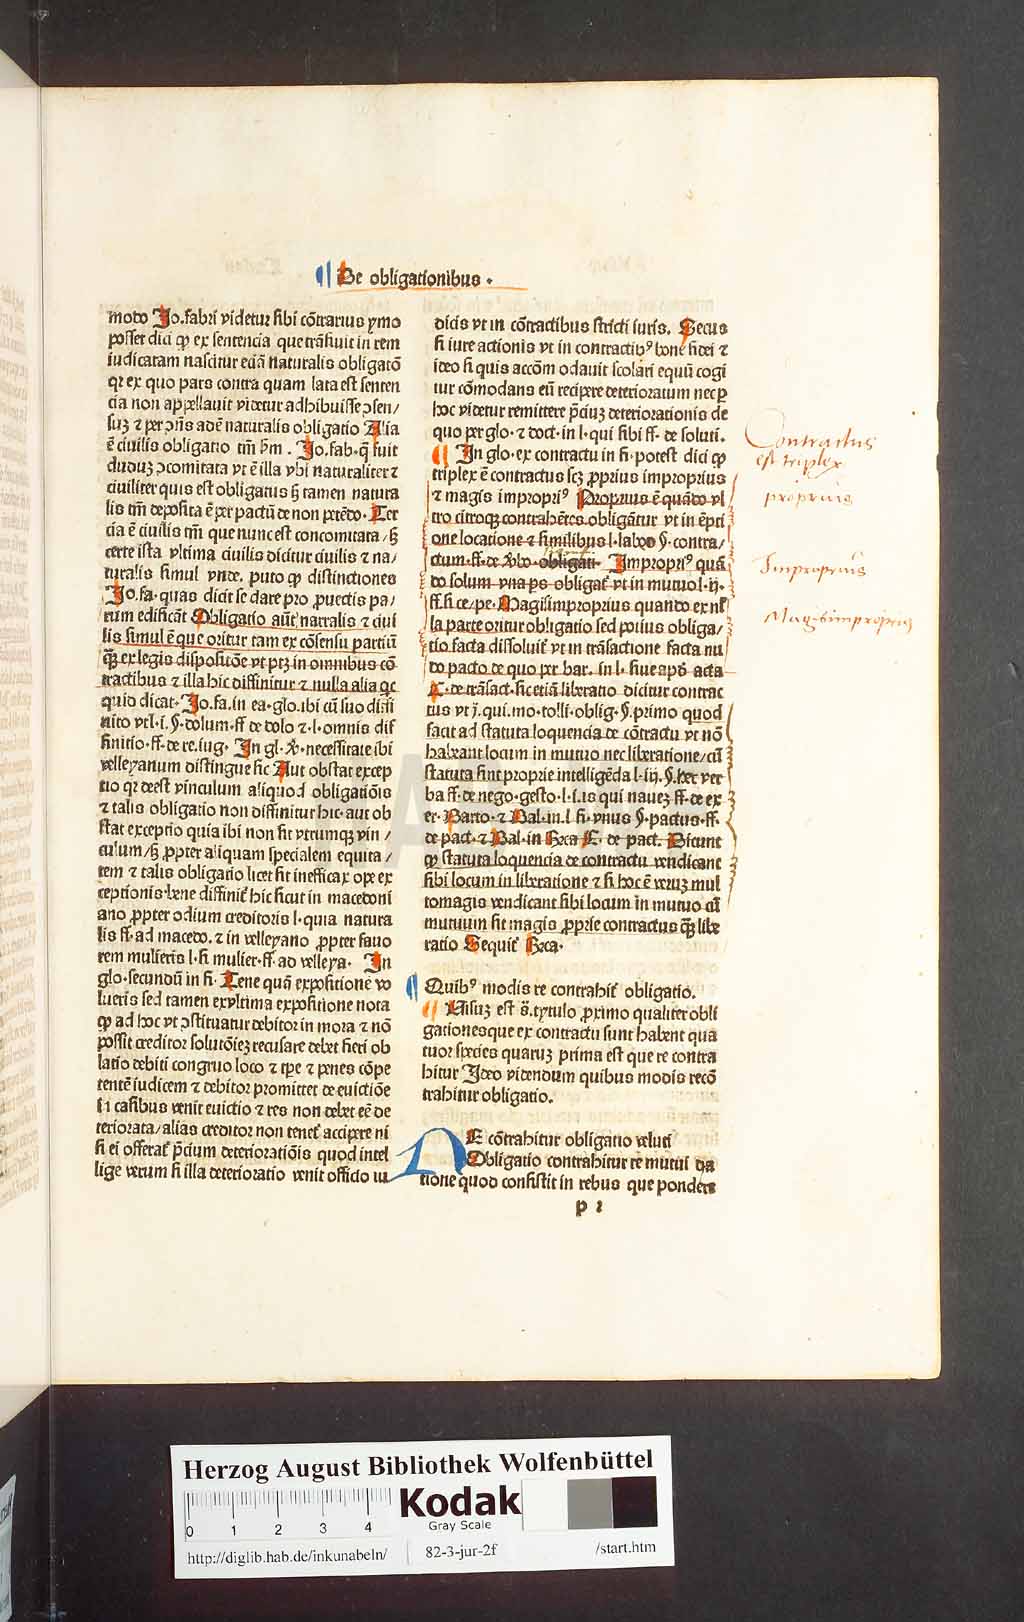 De obligationibus.
modo Jo. fabri videtur sibi cōtrarius ymo
posset dici ꝙ ex sentencia que trāsiuit in rem
iudicatam nascitur eciā naturalis obligatō
qr ex quo pars contra quam lata est senten
cia non appellauit videtur adhibuisse ↄsen/
suꝫ ⁊ per ↄn̄s adē naturalis obligatio Alia
ē ciuilis obligatio tm̄ hm̄. Jo. fab. q̄ fuit
duduꝫ ↄcomitata vt ē illa vbi naturaliter ⁊
ciuiliter quis est obligatus ꜩ tamen natura
lis tm̄ deposita ē per pactū de non petēdo. Ter
cia ē ciuilis tm̄ que nunc est concomitata/ꜩ
certe ista vltima ciuilis dicitur ciuilis ⁊ na/
turalis simul vnde. puto ꝙ distinctiones
Jo. fa. quas dicit se dare pro ꝓuectis pa/
rum edificāt Obligatio aūt naĺralis ⁊ ciui
lis simul ē que oritur tam ex cōsensu partiū
ꝙ̄ ex legis dispositōe vt ptꝫ in omnibus cō
tractibus ⁊ illa hic diffinitur ⁊ nulla alia qc
quid dicat. Jo. fa. in ea. glo. ibi cū suo diffi
nito vt l. i. §. dolum. ff de dolo ⁊ l. omnis dif
finitio. ff. de re. iug. In gl. ꝟ. necessitate ibi
velleyanum distingue sic Aut obstat excep
tio qr deest vinculum aliquod obligatiōis
⁊ talis obligatio non diffinitur hic. aut ob
stat exceptio quia ibi non sit vtrumqꝫ vin/
culum/ꜩ ꝓpter aliquam specialem equita/
tem ⁊ talis obligatio licet sit inefficax ope ex
ceptionis bene diffinit̄ hic sicut in macedoni
ano ꝓpter odium creditoris l. quia natura
lis ff. ad macedo. ⁊ in velleyano ꝓpter fauo
rem mulieris l. si mulier. ff. ad velleya. In
glo. secundū in fi. Tene quā expositionē vo
lueris sed tamen ex vltima expositione nota
ꝙ ad hoc vt ↄstituatur debitor in mora ⁊ nō
possit creditor solutōeꝫ recusare debet fieri ob
latio debiti congruo loco ⁊ tp̄e ⁊ penes cōpe
tentē iudicem ⁊ debitor promittet de euictiōe
si ī casibus venit euictio ⁊ res non debet eē de
teriorata/alias creditor non tenet̄ accipere ni
si ei offerat̄ p̄cium deterioratiōis quod intel
lige verum si illa deterioratio venit officio iu
dicis vt in cōtractibus stricti iuris. Secus
si iure actionis vt in contractibꝰ bone fidei ⁊
ideo si quis accōmodauit scolari equū cogi
tur cōmodans eū recipere deterioratum nec ꝑ
hoc videtur remittere p̄ciuꝫ deteriorationis de
quo per glo. ⁊ doct. in l. qui sibi ff. de soluti.
In glo. ex contractu in fi. potest dici ꝙ
triplex ē contractus scꝫ ꝓprius improprius
⁊ magis impropriꝰ Proprius ē quādo vl
tro citroqꝫ contrahētes obligātur vt in ēpti
one locatione ⁊ similibus l. labeo §. contra/
ctum. ff. de ꝟbo. obligati. Impropriꝰ quā
do solum vna ps obligat̄ vt in mutuo l. ij.
ff. si ce/pe. Magisimproprius quando ex nĺ
la parte oritur obligatio sed potius obliga/
tio facta dissoluit̄ vt in trāsactione facta nu
do pacto de quo per bar. in l. siue apd̄ acta
C. de trāsact. sic etiā liberatio dicitur contrac
tus vt j. qui. mo. tolli. oblig. §. primo quod
facit ad statuta loquencia de cōtractu vt nō
habeant locum in mutuo nec liberatione/cū
statuta sint proprie intelligēda l. iij. §. hec ver
ba ff. de nego. gesto. l. l. is qui naueꝫ ff. de ex
er. Barto. ⁊ Bal. in. l. si vnus §. pactus. ff.
de pact. ⁊ Bal. in Brca C. de pact. Dicunt
ꝙ statuta loquencia de contractu vendicant
sibi locum in liberatione ⁊ si hoc ē veruꝫ mul
tomagis vendicant sibi locum in mutuo cū
mutuum sit magis ꝓprie contractus ꝙ̄ libe
ratio Sequit̄ Brca.
Quibꝰ modis re contrahit̄ obligatio.
Uisuꝫ est s̄. tytulo ꝓximo qualiter obli
gationesque ex contractu sunt habent qua
tuor species quaruꝫ prima est que re contra
hitur Ideo videndum quibus modis recō
trahitur obligatio.
RE cōtrahitur obligatio veluti
Obligatio contrahitur re mutui da
tione quod consistit in rebus que pondere
p 2
Contractus
est triplex
proprius
Improprius
Magisimproprius
HAB
Herzog August Bibliothek Wolfenbüttel
0 1 2 3 4
Kodak
Gray Scale
http://diglib.hab.de/inkunabeln/ 82-3-jur-2f /start.htm